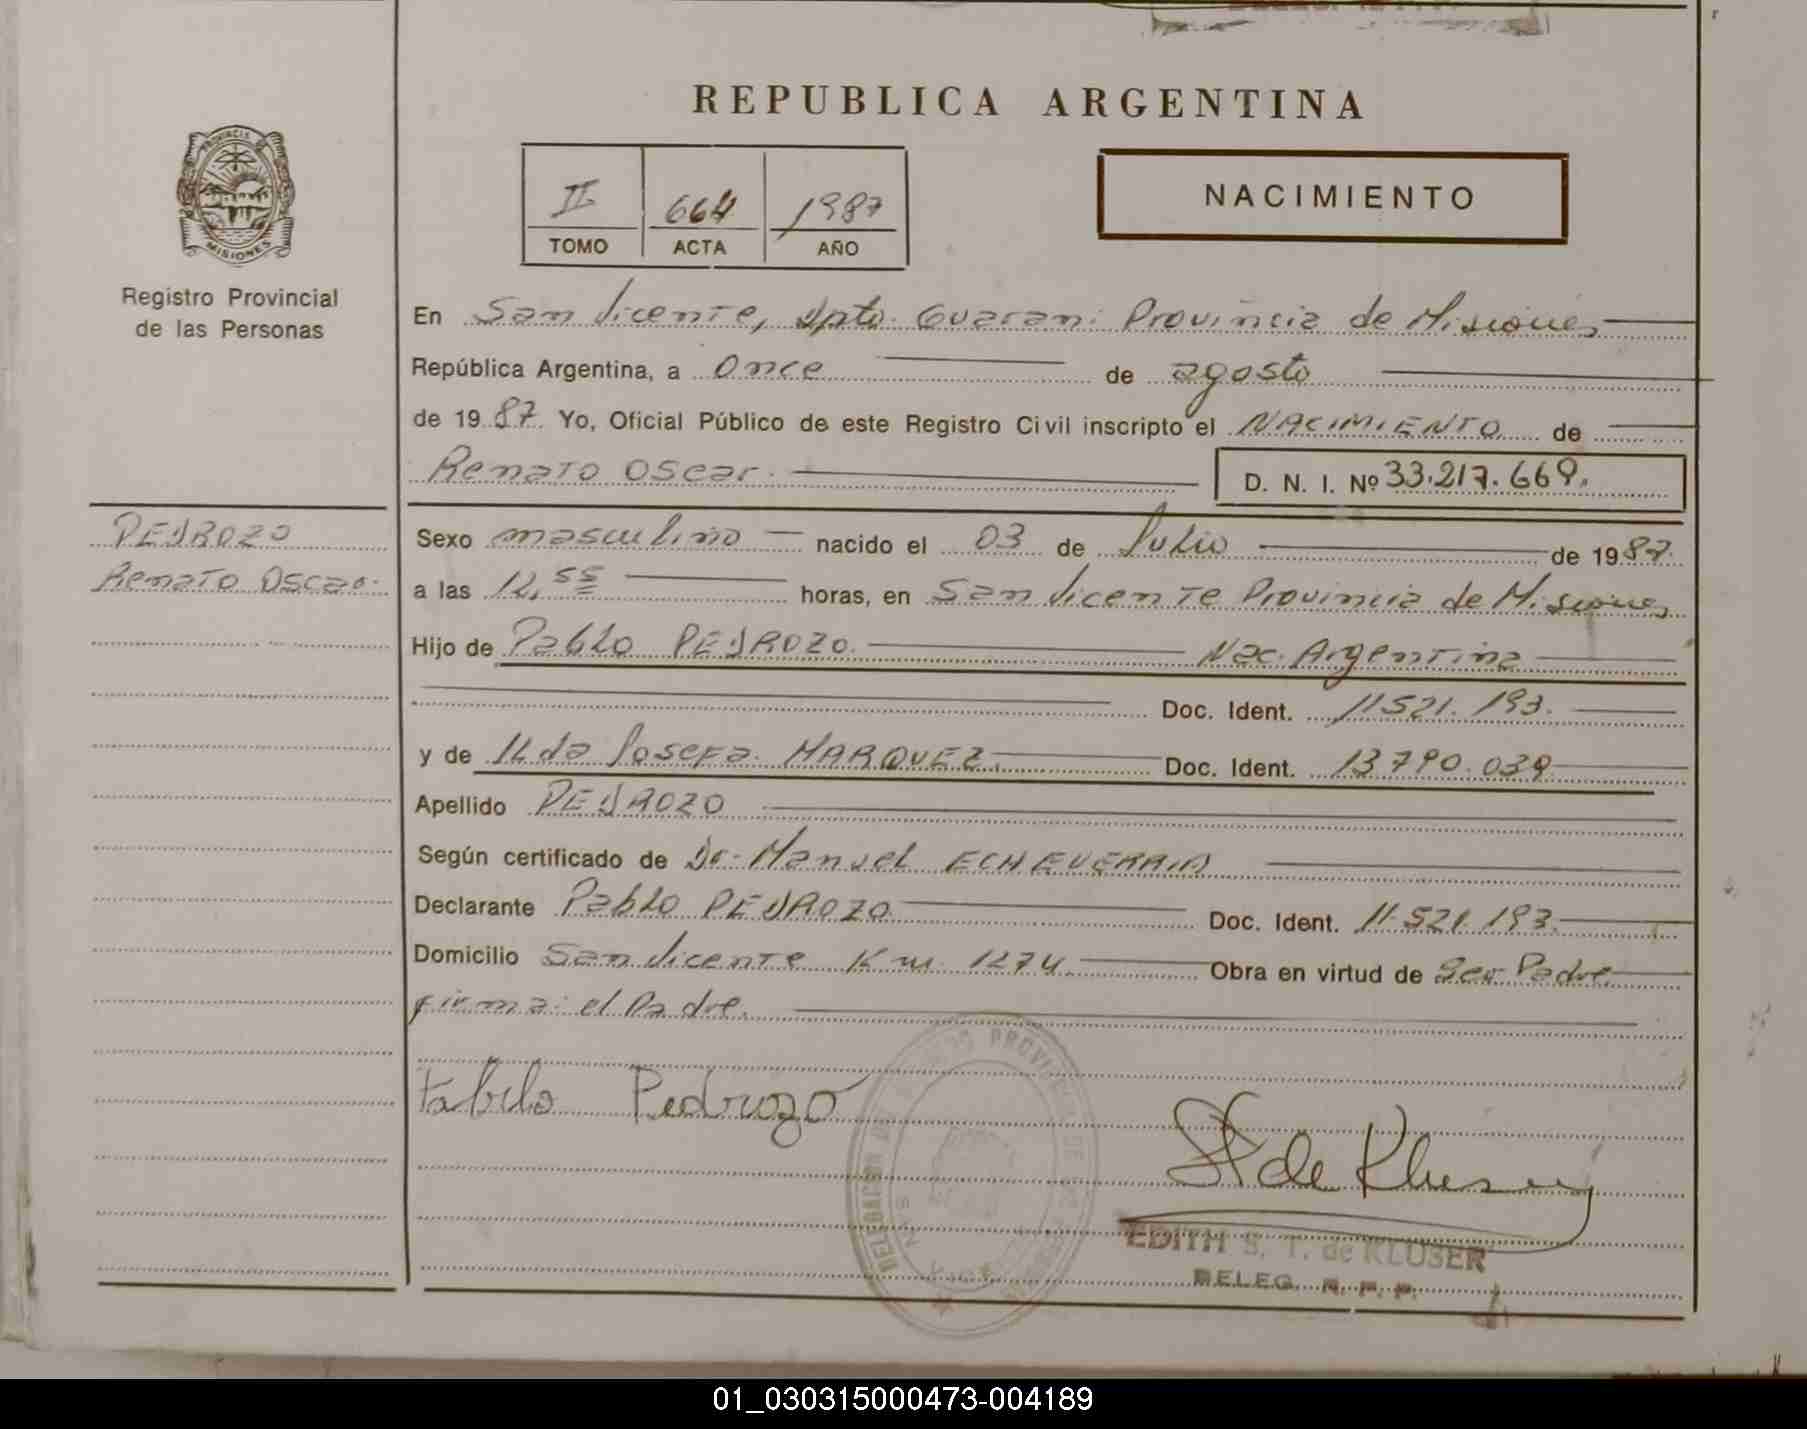 REPUBLICA ARGENTINA
PROVINCIA
MISIONES
Registro Provincial
de las Personas
II 664 1987
TOMO ACTA AÑO
NACIMIENTO
En San Vicente, Dpto. Guarani Provincia de Misiones
República Argentina, a once de agosto
de 1987. Yo, Oficial Público de este Registro Civil inscripto el NACIMIENTO de
Renato Oscar. D. N. I. Nº 33.217.669.
PEDROZO
Renato Oscar.
Sexo masculino nacido el 03 de Julio de 1987.
a las 12,55 horas, en San Vicente Provincia de Misiones
Hijo de Pablo PEDROZO. Nac. Argentina
Doc. Ident. 11.521.193.
y de Ilda Josefa. MARQUEZ. Doc. Ident. 13.790.039
Apellido PEDROZO
Según certificado de Dr. Manuel ECHEVERRIA
Declarante Pablo PEDROZO Doc. Ident. 11.521.193.
Domicilio San Vicente Km. 1274. Obra en virtud de Ser Padre
firma: el Padre.
Pablo Pedrozo
DELEGACION
EDITH S. T. de KLUSER
DELEG. R. P. P.
01_030315000473-004189